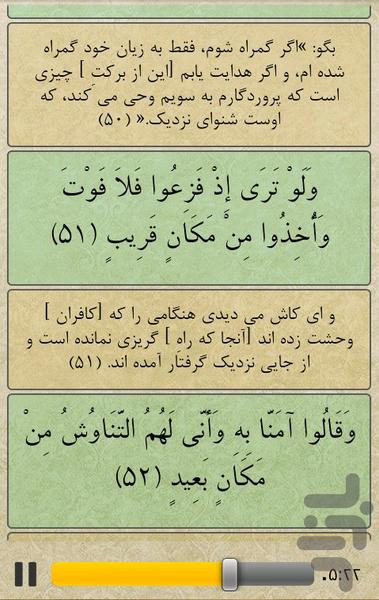 بگو: »اگر گمراه شوم، فقط به زیان خود گمراه
شده ام، و اگر هدایت یابم [این از برکت ] چیزی
است که پروردگارم به سویم وحی می کند، که
اوست شنوای نزدیک.« (۵۰)
وَلَوْ تَرَى إِذْ فَزِعُوا فَلاَ فَوْتَ
وَأُخِذُوا مِنْ مَكَانٍ قَرِيبٍ (۵۱)
و ای کاش می دیدی هنگامی را که [کافران ]
وحشت زده اند [آنجا که راه ] گریزی نمانده است و
از جایی نزدیک گرفتار آمده اند. (۵۱)
وَقَالُوا آمَنَّا بِهِ وَأَنَّى لَهُمُ التَّنَاوُشُ مِنْ
مَكَانٍ بَعِيدٍ (۵۲)
۰۵:۲۲
بازار